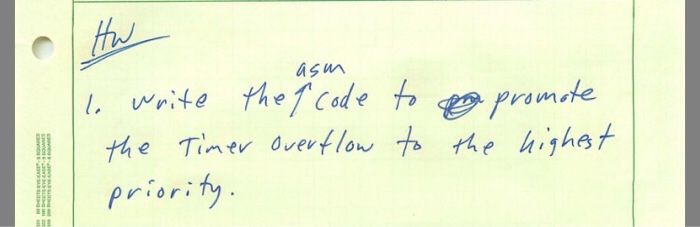 HW
asm
1. write the code to promote
the Timer Overflow to the highest
priority.